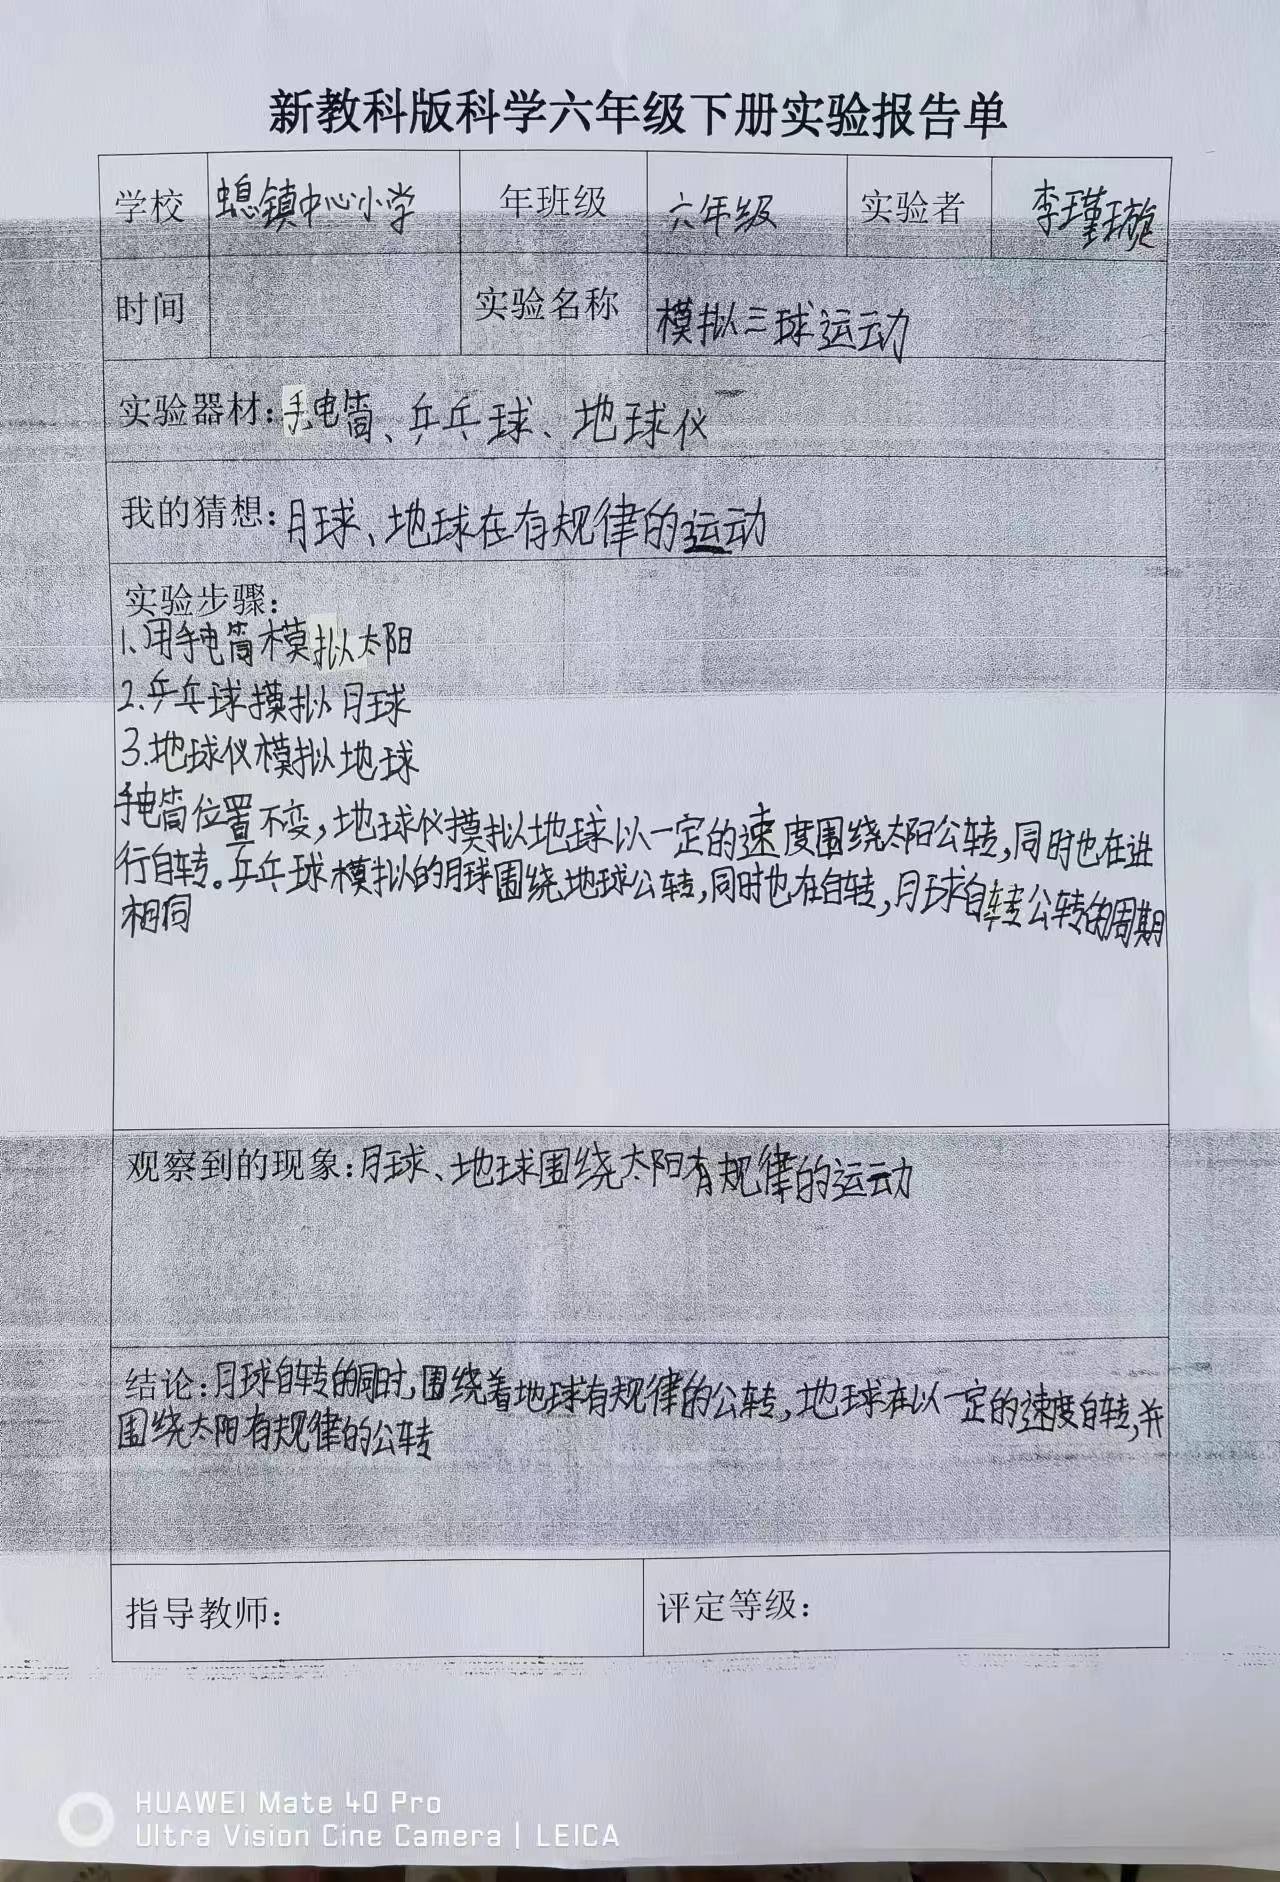 新教科版科学六年级下册实验报告单
学校 螅镇中心小学 年班级 六年级 实验者 李瑾璇
时间 实验名称 模拟三球运动
实验器材:手电筒、乒乓球、地球仪
我的猜想:月球、地球在有规律的运动
实验步骤:
1.用手电筒模拟太阳
2.乒乓球摸拟月球
3.地球仪模拟地球
手电筒位置不变,地球仪摸拟地球以一定的速度围绕太阳公转,同时也在进
行自转。乒乓球模拟的月球围绕地球公转,同时也在自转,月球自转公转的周期
相同
观察到的现象:月球、地球围绕太阳有规律的运动
结论:月球自转的同时,围绕着地球有规律的公转,地球在以一定的速度自转,并
围绕太阳有规律的公转
指导教师: 评定等级:
HUAWEI Mate 40 Pro
Ultra Vision Cine Camera | LEICA